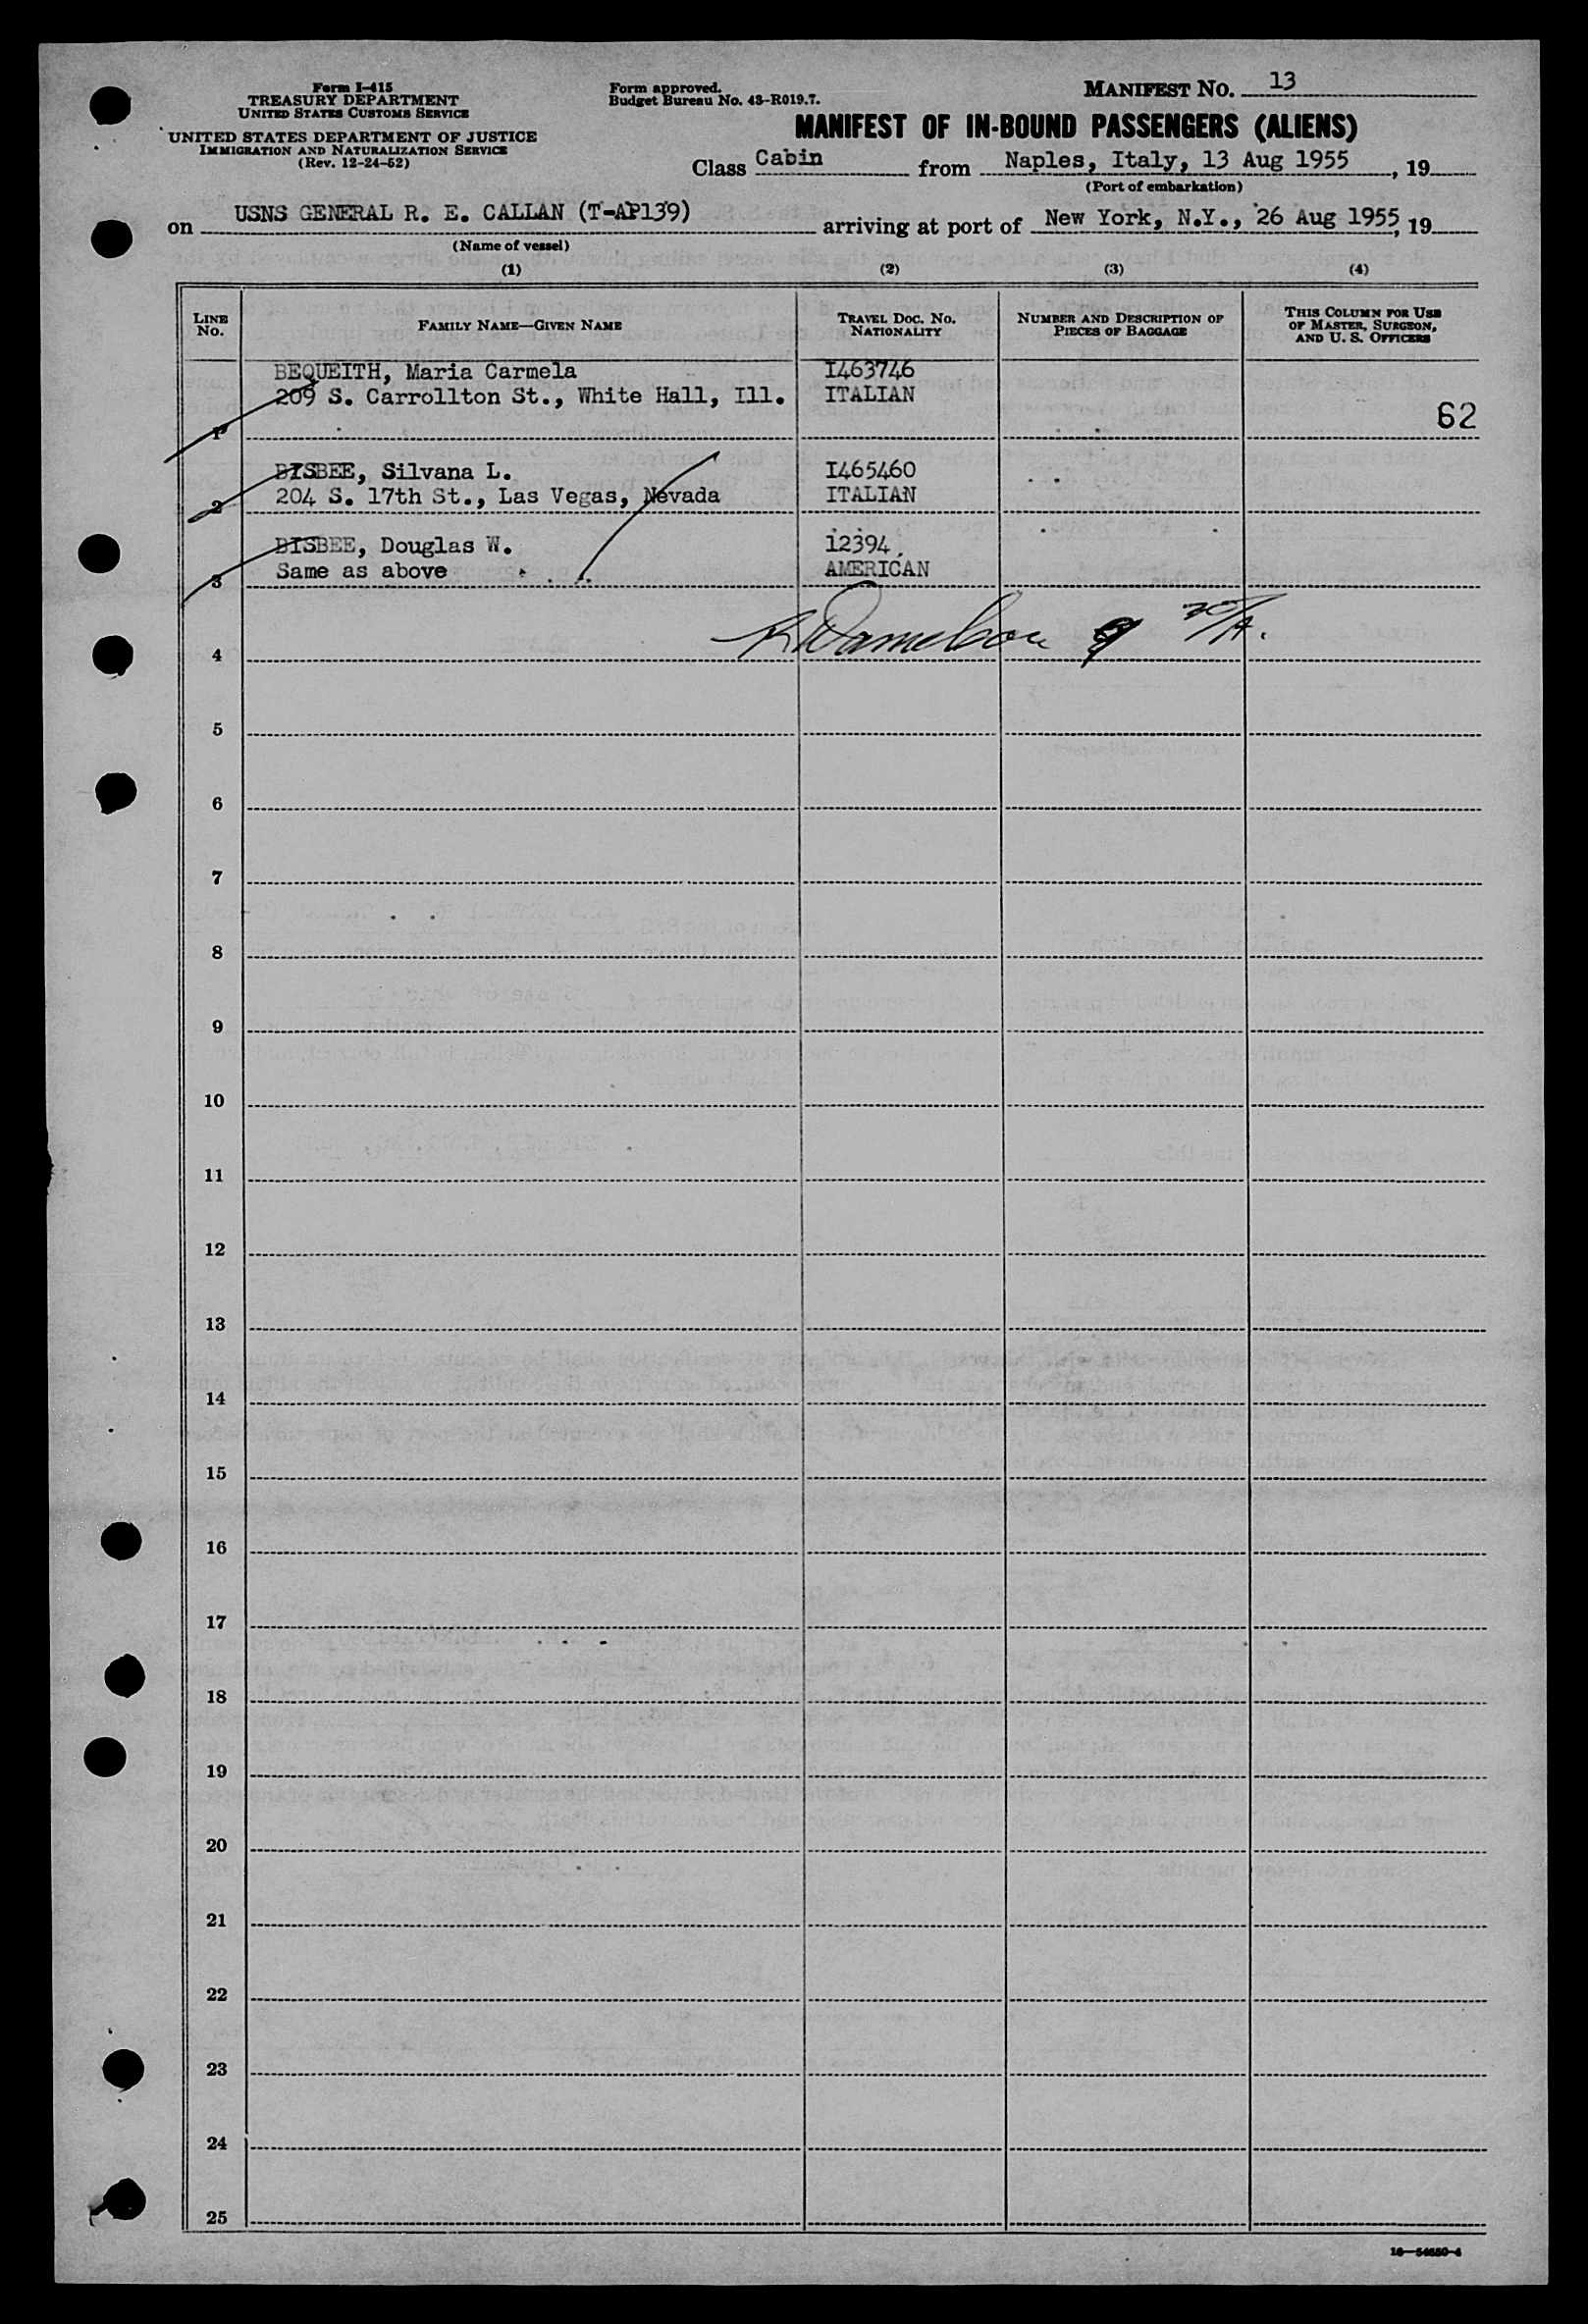 Form I-415
TREASURY DEPARTMENT
UNITED STATES CUSTOMS SERVICE
UNITED STATES DEPARTMENT OF JUSTICE
IMMIGRATION AND NATURALIZATION SERVICE
(Rev. 12-24-52)
Form approved.
Budget Bureau No. 43-R019.7.
MANIFEST NO. 13
MANIFEST OF IN-BOUND PASSENGERS (ALIENS)
Class Cabin from Naples, Italy, 13 Aug 1955, 19
(Port of embarkation)
on USNS GENERAL R. E. CALLAN (T-AP139) arriving at port of New York, N.Y., 26 Aug 1955, 19
(Name of vessel)
(1) (2) (3) (4)
LINE NO. FAMILY NAME—GIVEN NAME TRAVEL DOC. NO. NATIONALITY NUMBER AND DESCRIPTION OF PIECES OF BAGGAGE THIS COLUMN FOR USE OF MASTER, SURGEON, AND U. S. OFFICERS
BEQUEITH, Maria Carmela I463746
209 S. Carrollton St., White Hall, Ill. ITALIAN
1 62
BISBEE, Silvana L. I465460
204 S. 17th St., Las Vegas, Nevada ITALIAN
2
BISBEE, Douglas W. 12394
Same as above AMERICAN
3
4
5
6
7
8
9
10
11
12
13
14
15
16
17
18
19
20
21
22
23
24
25